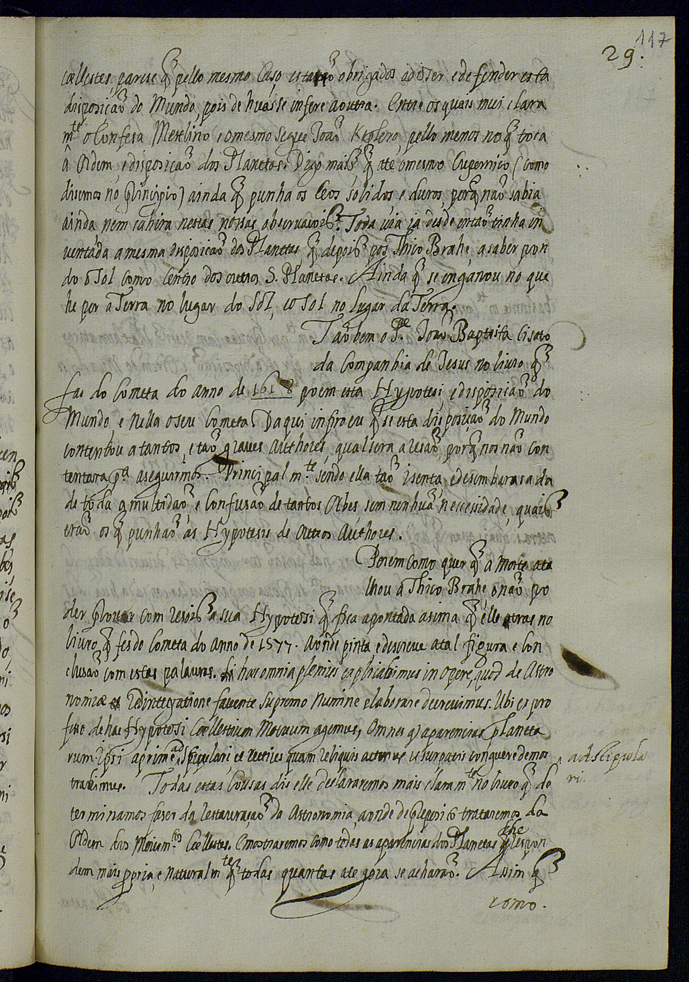 117
29.
cœllestes, parese q̃ pello mesmo Caso estarão obrigados a dizer e defender esta
disposicaõ do Mundo, pois de huãs se infere a outra. Entre os quais mui clara
mte o Confesa Mestlino, e o mesmo segue Joaõ Keplero, pello menos no q̃ toca
â Ordem e disposiçaõ dos Planetas. Digo mais q̃ ate o mesmo Cupernico (como
disemos no principio) ainda q̃ punha os Ceos solidos e duros, porq̃ naõ sabia
ainda nem cahira nestas nossas observaçois. Toda via ja desde entaõ tinha in
ventada a mesma disposicaõ dos Planetas q̃ depois pos Thico Brahe, a saber pon
do o Sol como Centro dos outros 5. Planetas. Ainda q̃ se enganou no que
he por a Terra no lugar do Sol, e o Sol no lugar da Terra.
Taõ bem o Pe. Joaõ Baptista Cisato
da Companhia de Jesus no livro q̃
fas do Cometa do anno de 1618 poem esta Hypotesi e disposiçaõ do
Mundo, e nella o seu Cometa. Daqui infiro eu q̃ se esta disposiçaõ do Mundo
contentou a tantos, e taõ graves Authores, qual sera a resaõ porq̃ nos naõ con
tentara pa. a seguirmos. Principalmte sendo ella taõ isenta e desembarasada
de toda a multidaõ e Confusaõ de tantos Orbes sem nenhuã necessidade, quais
eraõ os q̃ punhaõ as Hypotesis de outros Authores.
Porem como quer q̃ a morte ata
lhou a Thico Brahe o naõ po
der provar com resois a sua Hypotesi q̃ fica apontada asima q̃ elle atras no
livro q̃ fes do Cometa do anno de 1577. Aonde pinta e descreve a tal figura e Con
clusaõ com estas palavras. hæc omnia plenius explicabimus in opere, quod de Astro
nomiæ Redintegratione favente Supremo Numine elaborare decrevimus. Ubi ex pro
feso de hac Hypotesi Cœllestium Motuum agemus, Omnes q̃ apparentias planeta
rum ipsi aprime
ad stipula
ri.
trademus. Todas estas Cousas dis elle declararemos mais claramte no livro q̃ de
terminamos faser da restauraçaõ da Astronomia, aonde trataremos da
Ordem dos Movimtos Cœllestes. E mostraremos como todas as aparencias dos Planetas lhe respon
dem mais propria, e naturalmte q̃ todas quantas ate gora se acharaõ. Assim q̃
como.